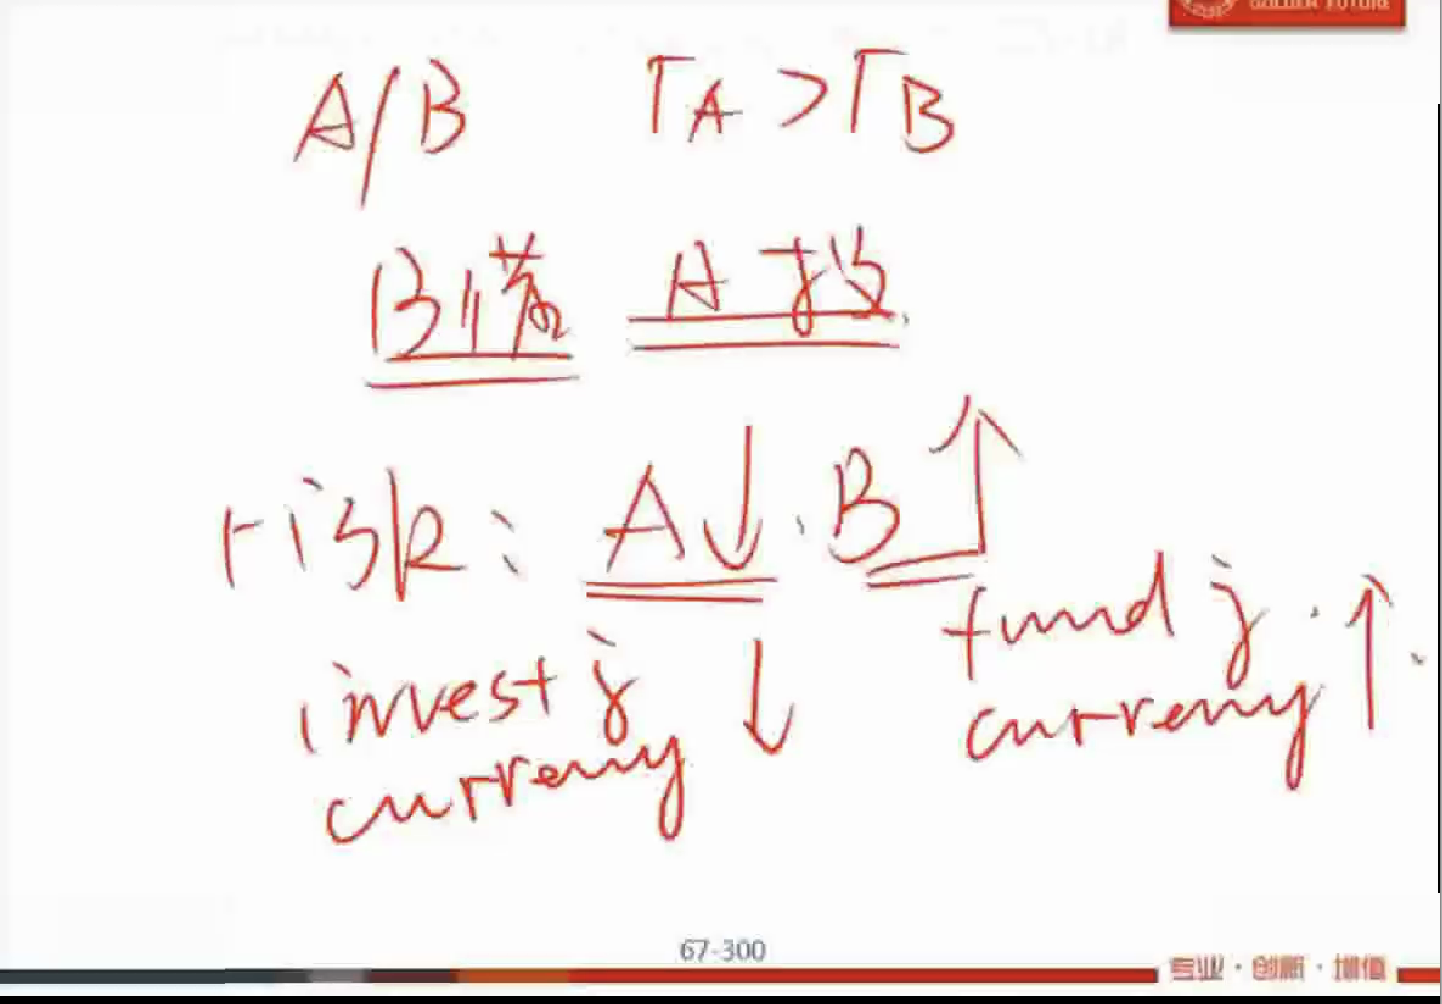 GOLDEN FUTURE
A/B rA > rB
B借 A投
risk: A↓. B↑
investing currency ↓
funding currency ↑.
67-300
专业·创新·增值